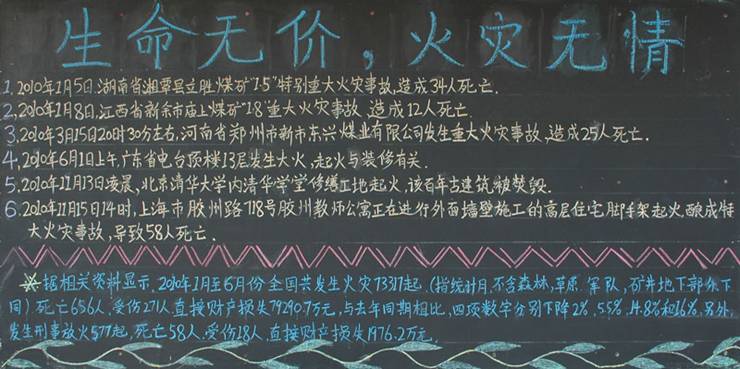 生命无价，火灾无情
1，2010年1月5日，湖南省湘潭县立胜煤矿"1·5"特别重大火灾事故，造成34人死亡．
2，2010年1月8日，江西省新余市庙上煤矿"1·8"重大火灾事故，造成12人死亡．
3，2010年3月15日20时30分左右，河南省郑州市新市东兴煤业有限公司发生重大火灾事故，造成25人死亡．
4，2010年6月1日上午，广东省电台顶楼13层发生大火，起火与装修有关．
5，2010年11月13日凌晨，北京清华大学内清华学堂修缮工地起火，该百年古建筑被焚毁．
6，2010年11月15日14时，上海市胶州路718号胶州教师公寓正在进行外面墙壁施工的高层住宅脚手架起火，酿成特
大火灾事故，导致58人死亡．
※据相关资料显示，2010年1月至6月份全国共发生火灾73317起，(指统计月，不含森林，草原．军队，矿井地下部分下
同)死亡656人，受伤271人，直接财产损失79290.7万元，与去年同期相比，四项数字分别下降2%，5.5%，14.8%和16%，另外，
发生刑事放火577起，死亡58人．受伤28人．直接财产损失1976.2万元．